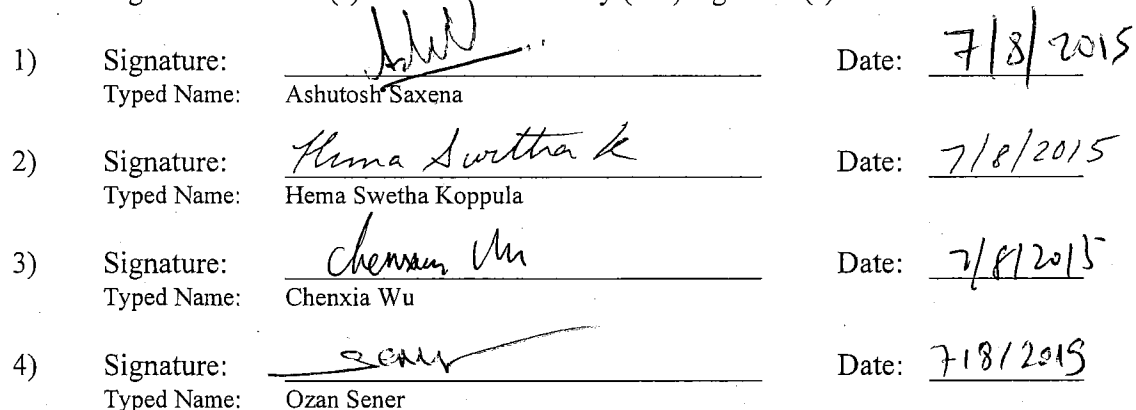 1) Signature: Date: 7/8/2015
Typed Name: Ashutosh Saxena
2) Signature: Hema Swetha K Date: 7/8/2015
Typed Name: Hema Swetha Koppula
3) Signature: Chenxia Wu Date: 7/8/2015
Typed Name: Chenxia Wu
4) Signature: Sener Date: 7/8/2015
Typed Name: Ozan Sener